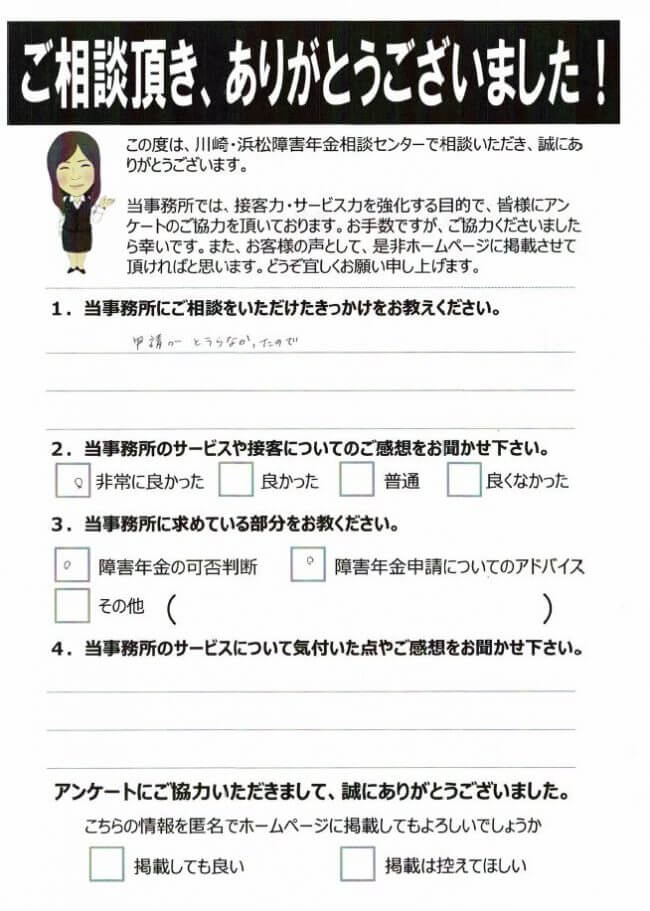 ご相談頂き、ありがとうございました！
この度は、川崎・浜松障害年金相談センターで相談いただき、誠にあ
りがとうございます。
当事務所では、接客力・サービス力を強化する目的で、皆様にアン
ケートのご協力を頂いております。お手数ですが、ご協力くださいました
ら幸いです。また、お客様の声として、是非ホームページに掲載させて
頂ければと思います。どうぞ宜しくお願い申し上げます。
1．当事務所にご相談をいただけたきっかけをお教えください。
申請が とうらなかったので
2．当事務所のサービスや接客についてのご感想をお聞かせ下さい。
非常に良かった 良かった 普通 良くなかった
3．当事務所に求めている部分をお教ください。
障害年金の可否判断 障害年金申請についてのアドバイス
その他 （ ）
4．当事務所のサービスについて気付いた点やご感想をお聞かせ下さい。
アンケートにご協力いただきまして、誠にありがとうございました。
こちらの情報を匿名でホームページに掲載してもよろしいでしょうか
掲載しても良い 掲載は控えてほしい